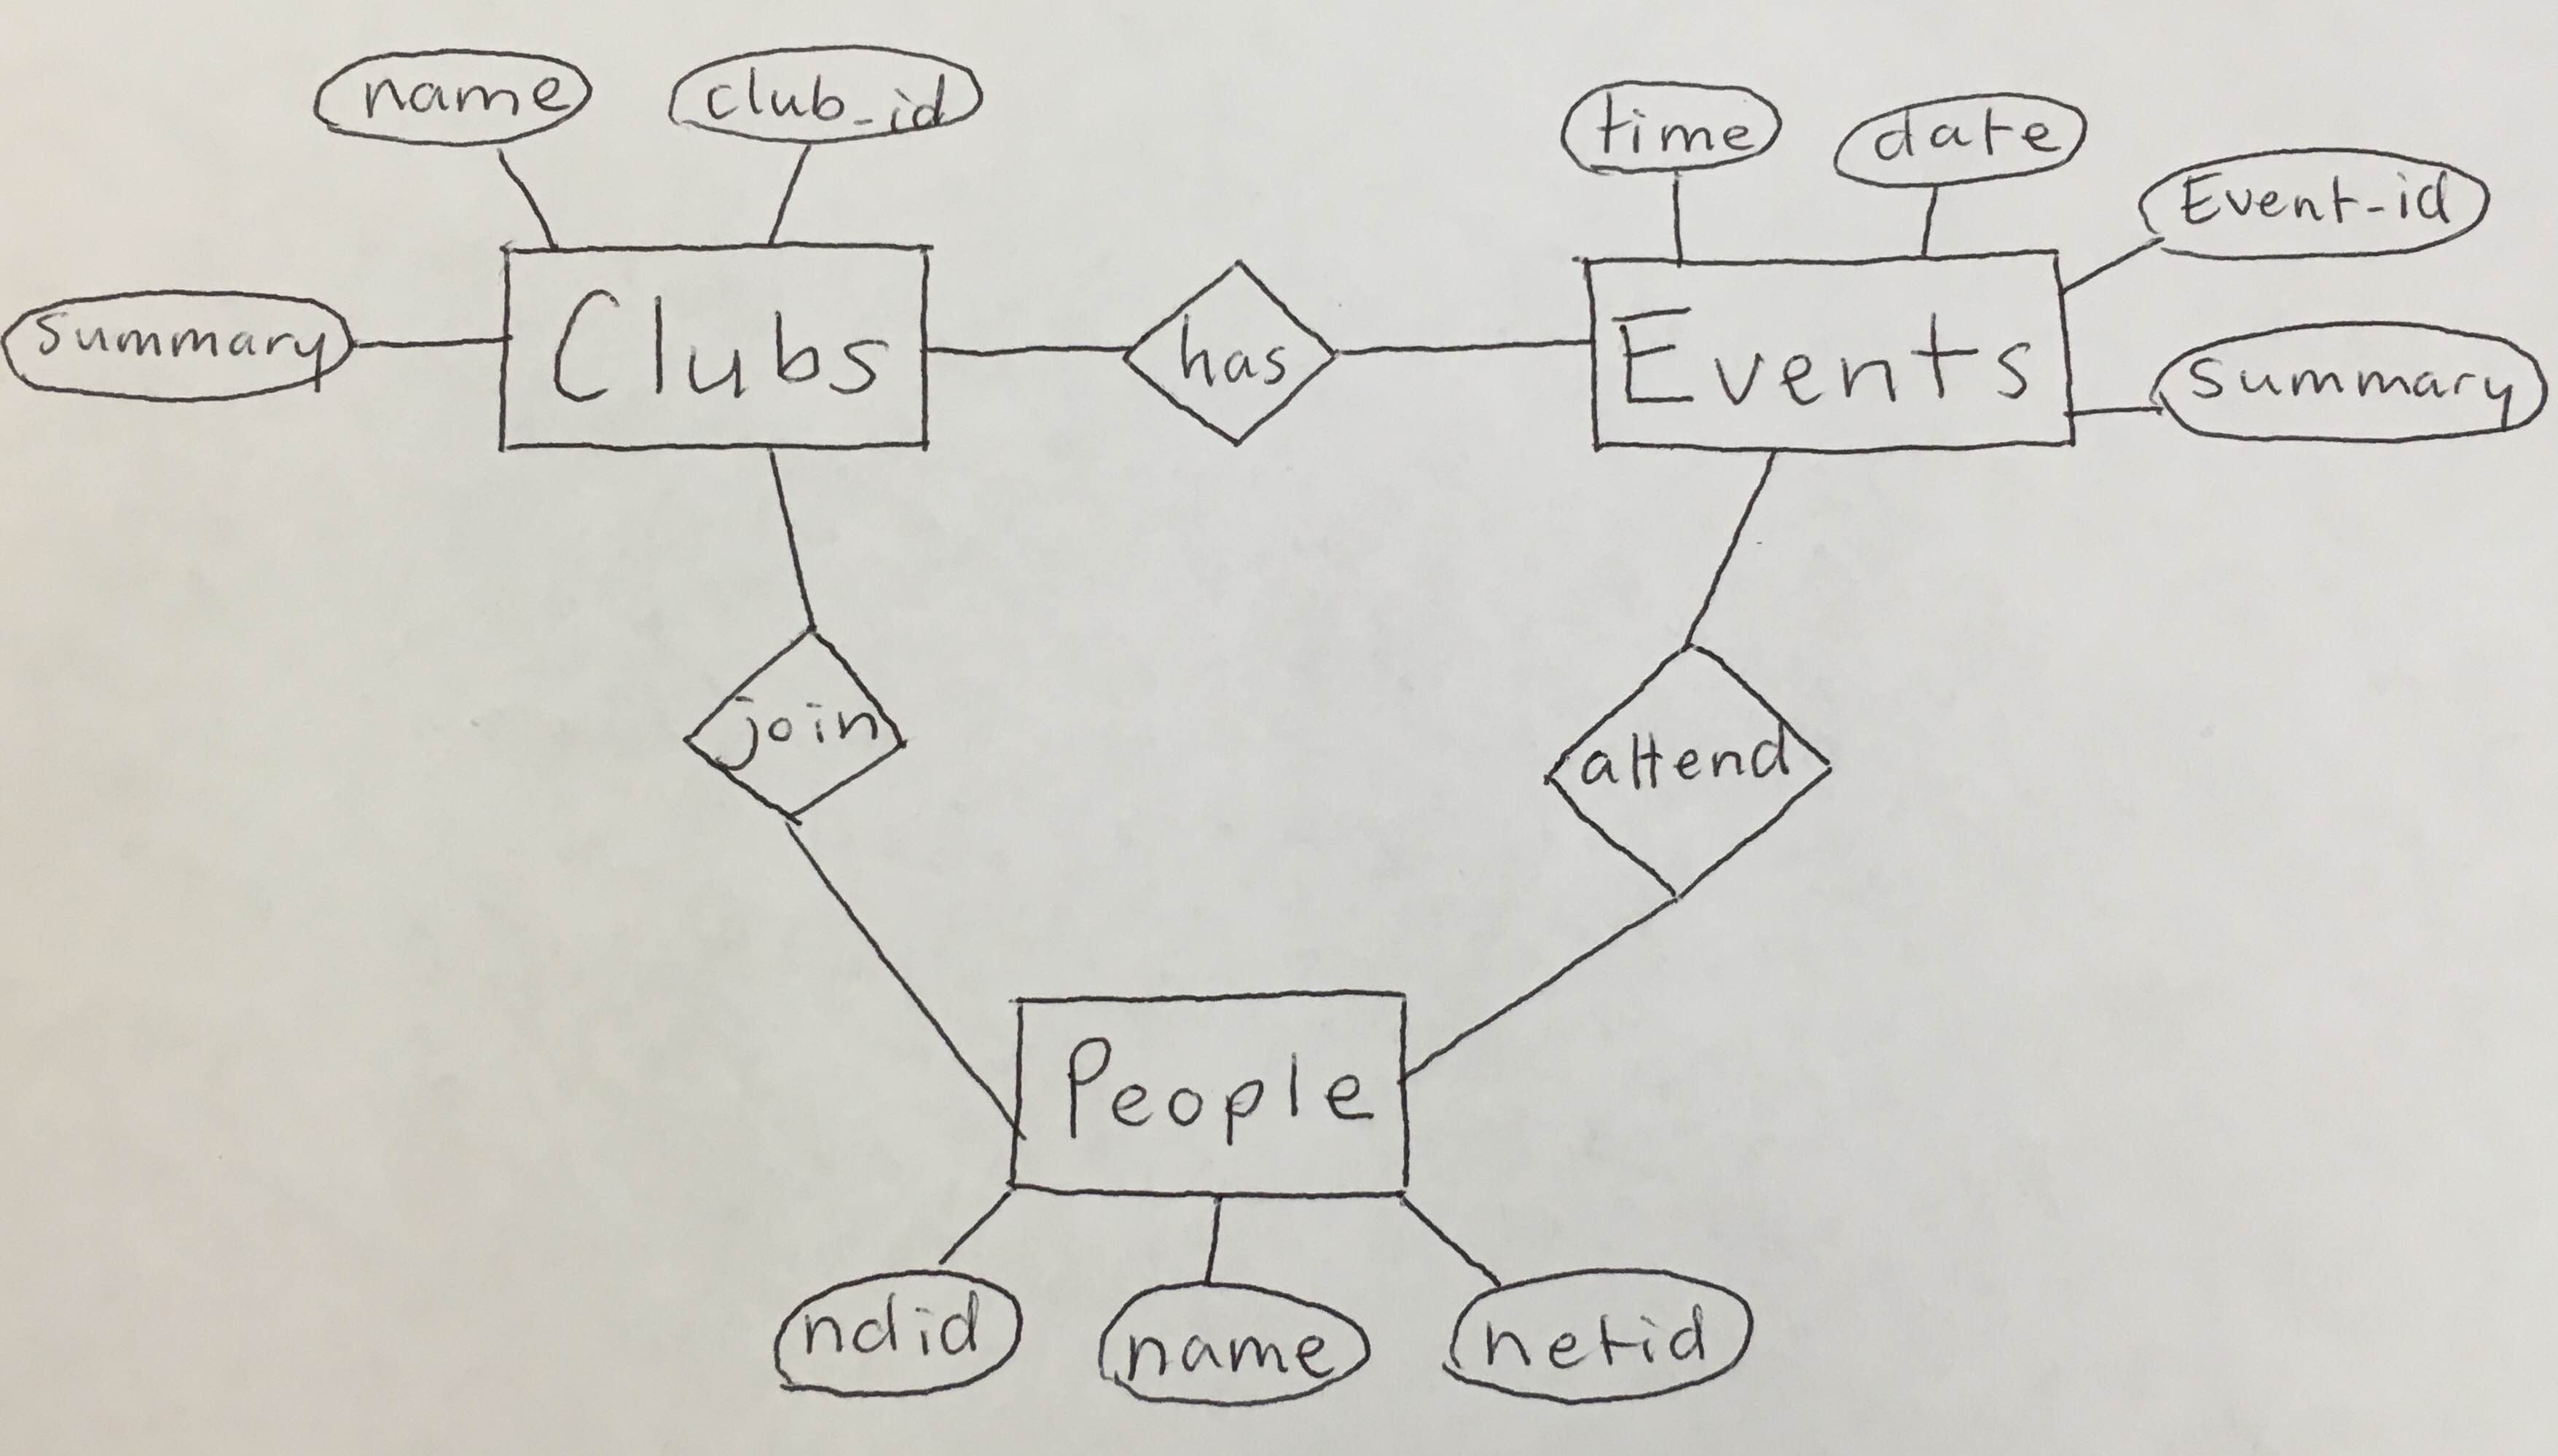 name
club_id
time
date
Event-id
summary
Clubs
has
Events
summary
join
attend
People
ndid
name
netid